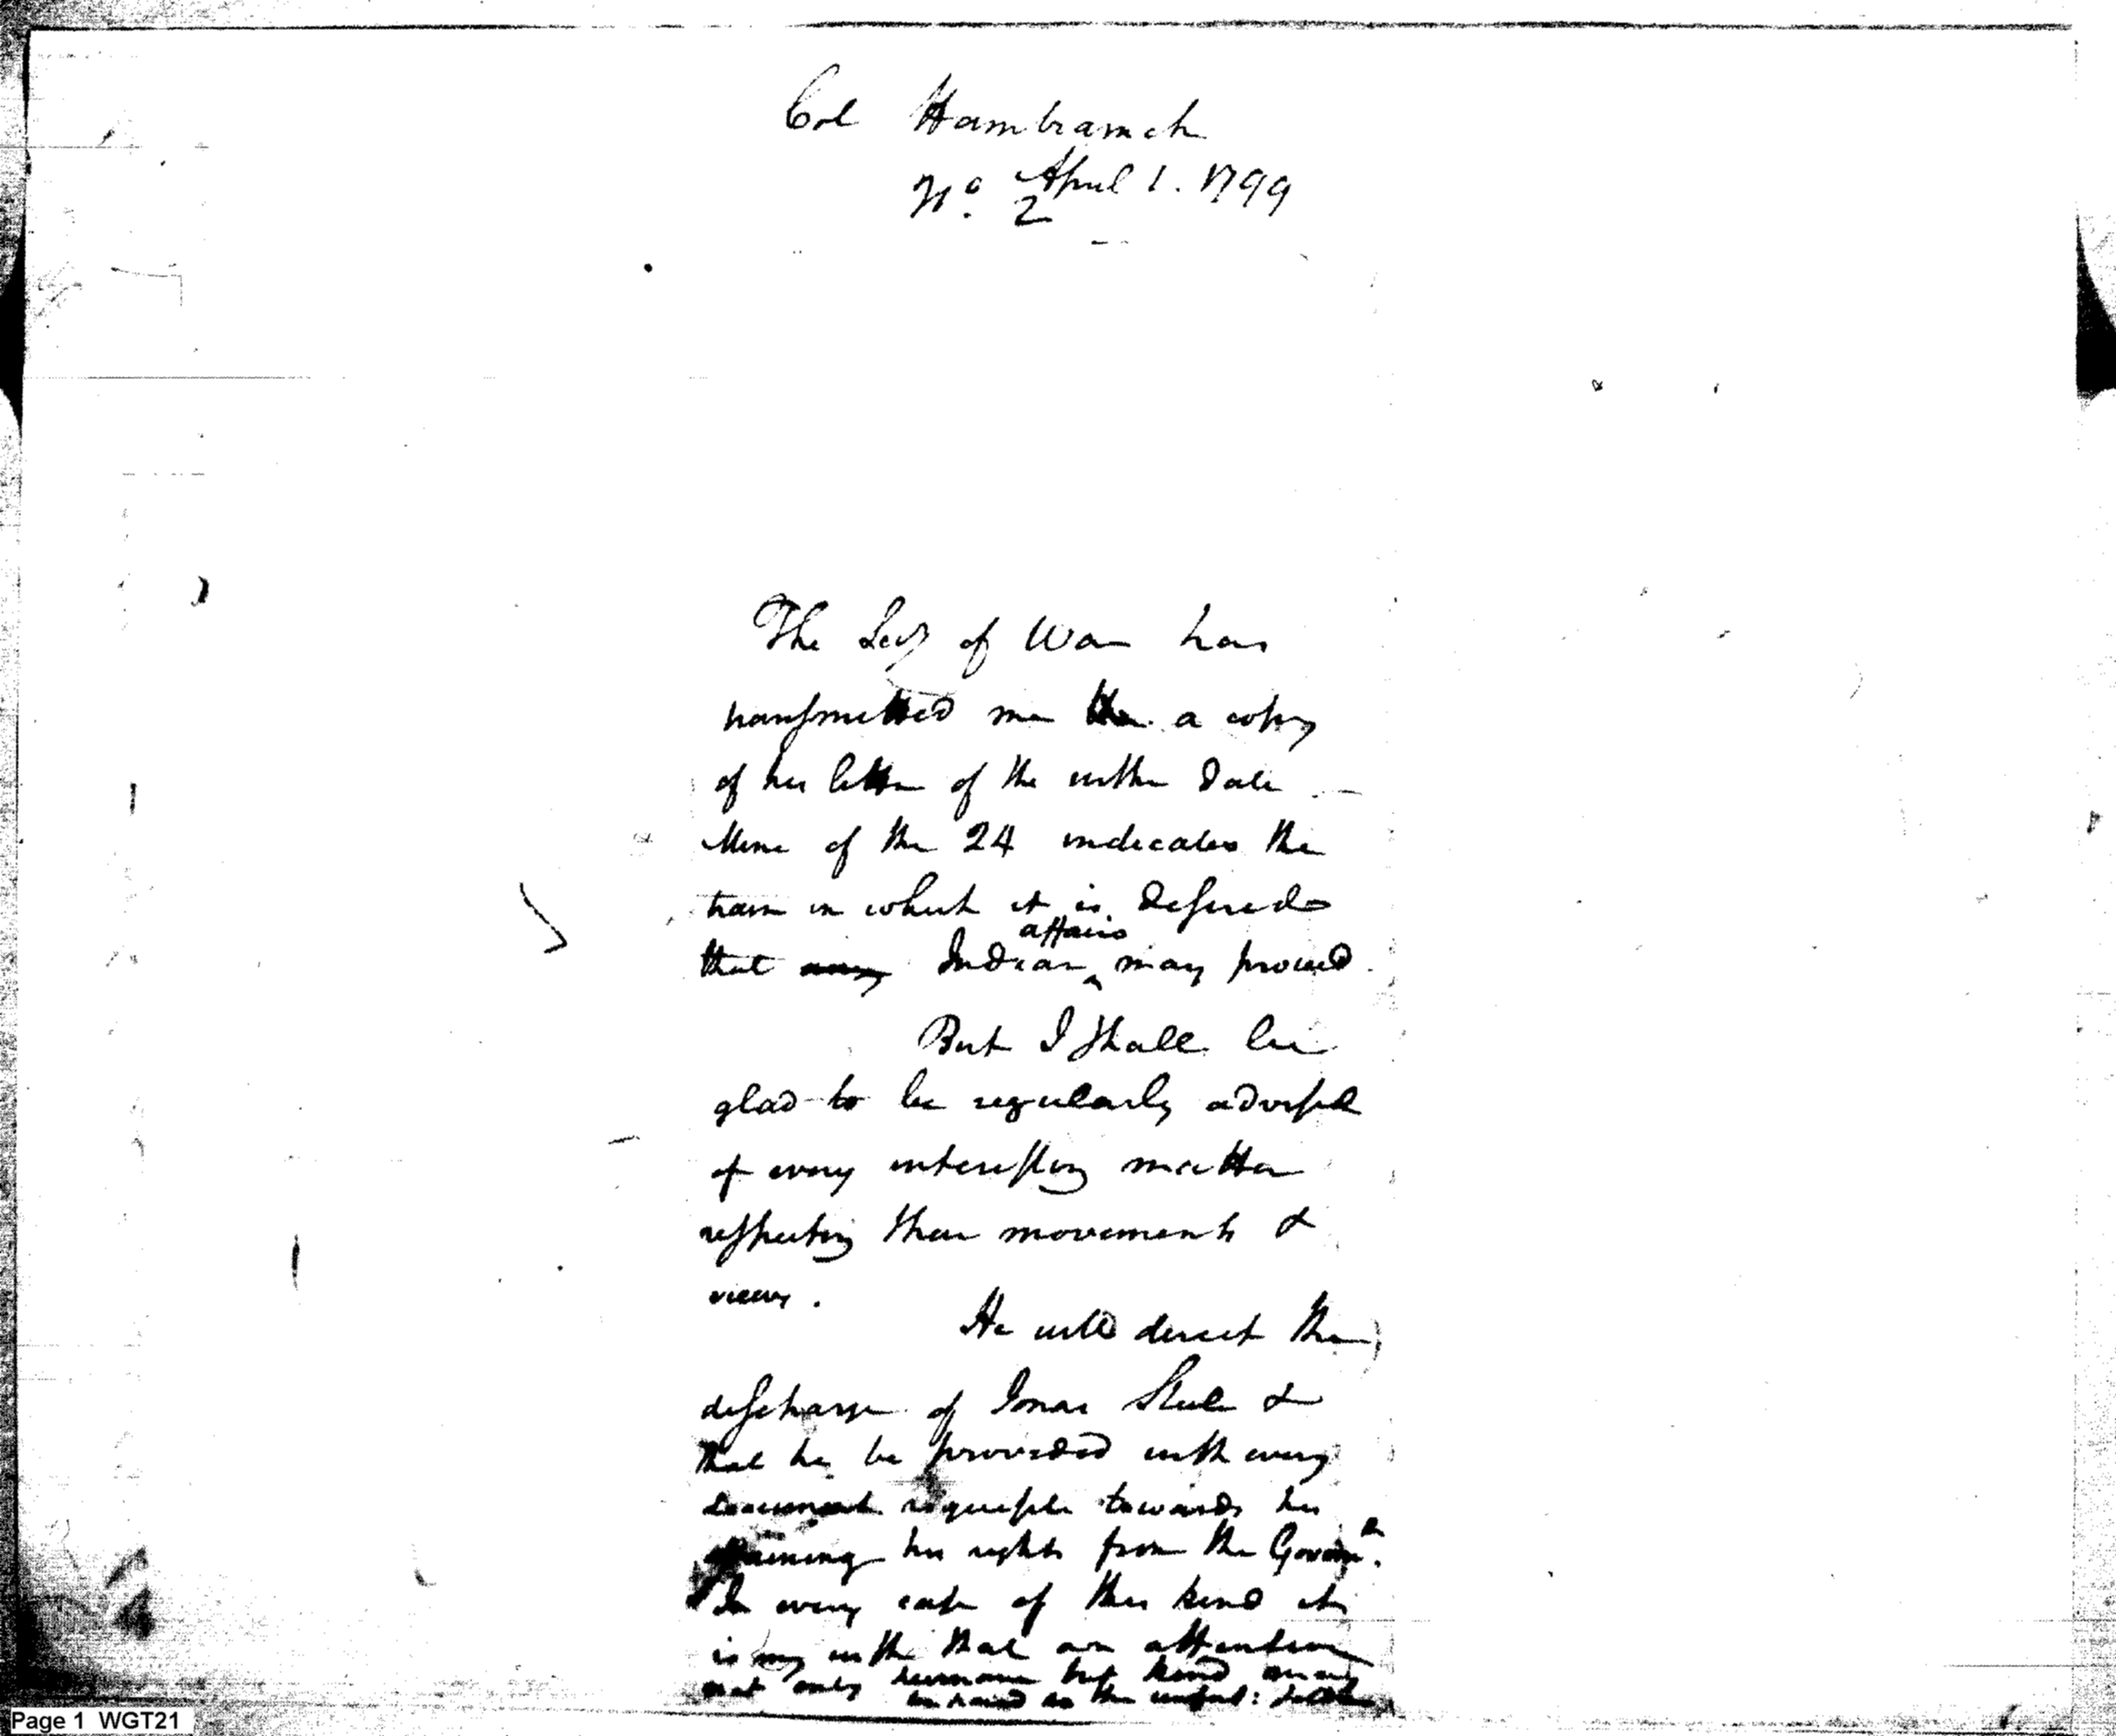 Col Hambramck
April 1. 1799
No. 2
The Secy of War has
transmitted me the a copy
of his letter of the within date
Mine of the 24 indicates the
train in which it is desired
affairs
that any Indian may proceed.
But I shall be
glad to be regularly advised
of every interesting matter
respecting their movements &
views.
He will direct the
discharge of Jonas Steele &
that he be provided with every
document requisite towards his
obtaining his rights from the Governt.
In every case of this kind it
is my wish that an attention
not only humane but kind may
be paid to the unfort: Soldier
Page 1 WGT21